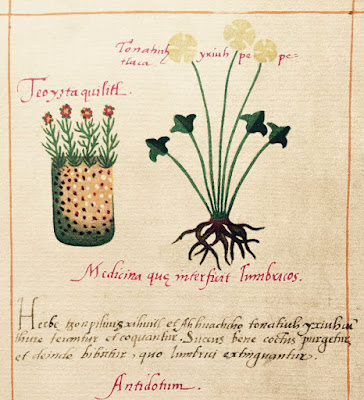 Tonatiuh yxiuh pe pe=
tlaca.
Teoyztaquilitl.
Medicina quę interficit lumbricos.
Herbę tzonpiliuizxihuitl et Atehuachcho tonatiuh yxiuh
thine teruntur et coquantur. Succus bene coctus purgetur
et deinde bibitur, quo lumbrici extinguantur.
Antidotum.